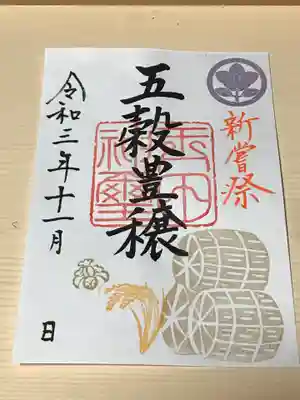 新嘗祭
五穀豊穣
令和三年十一月 日